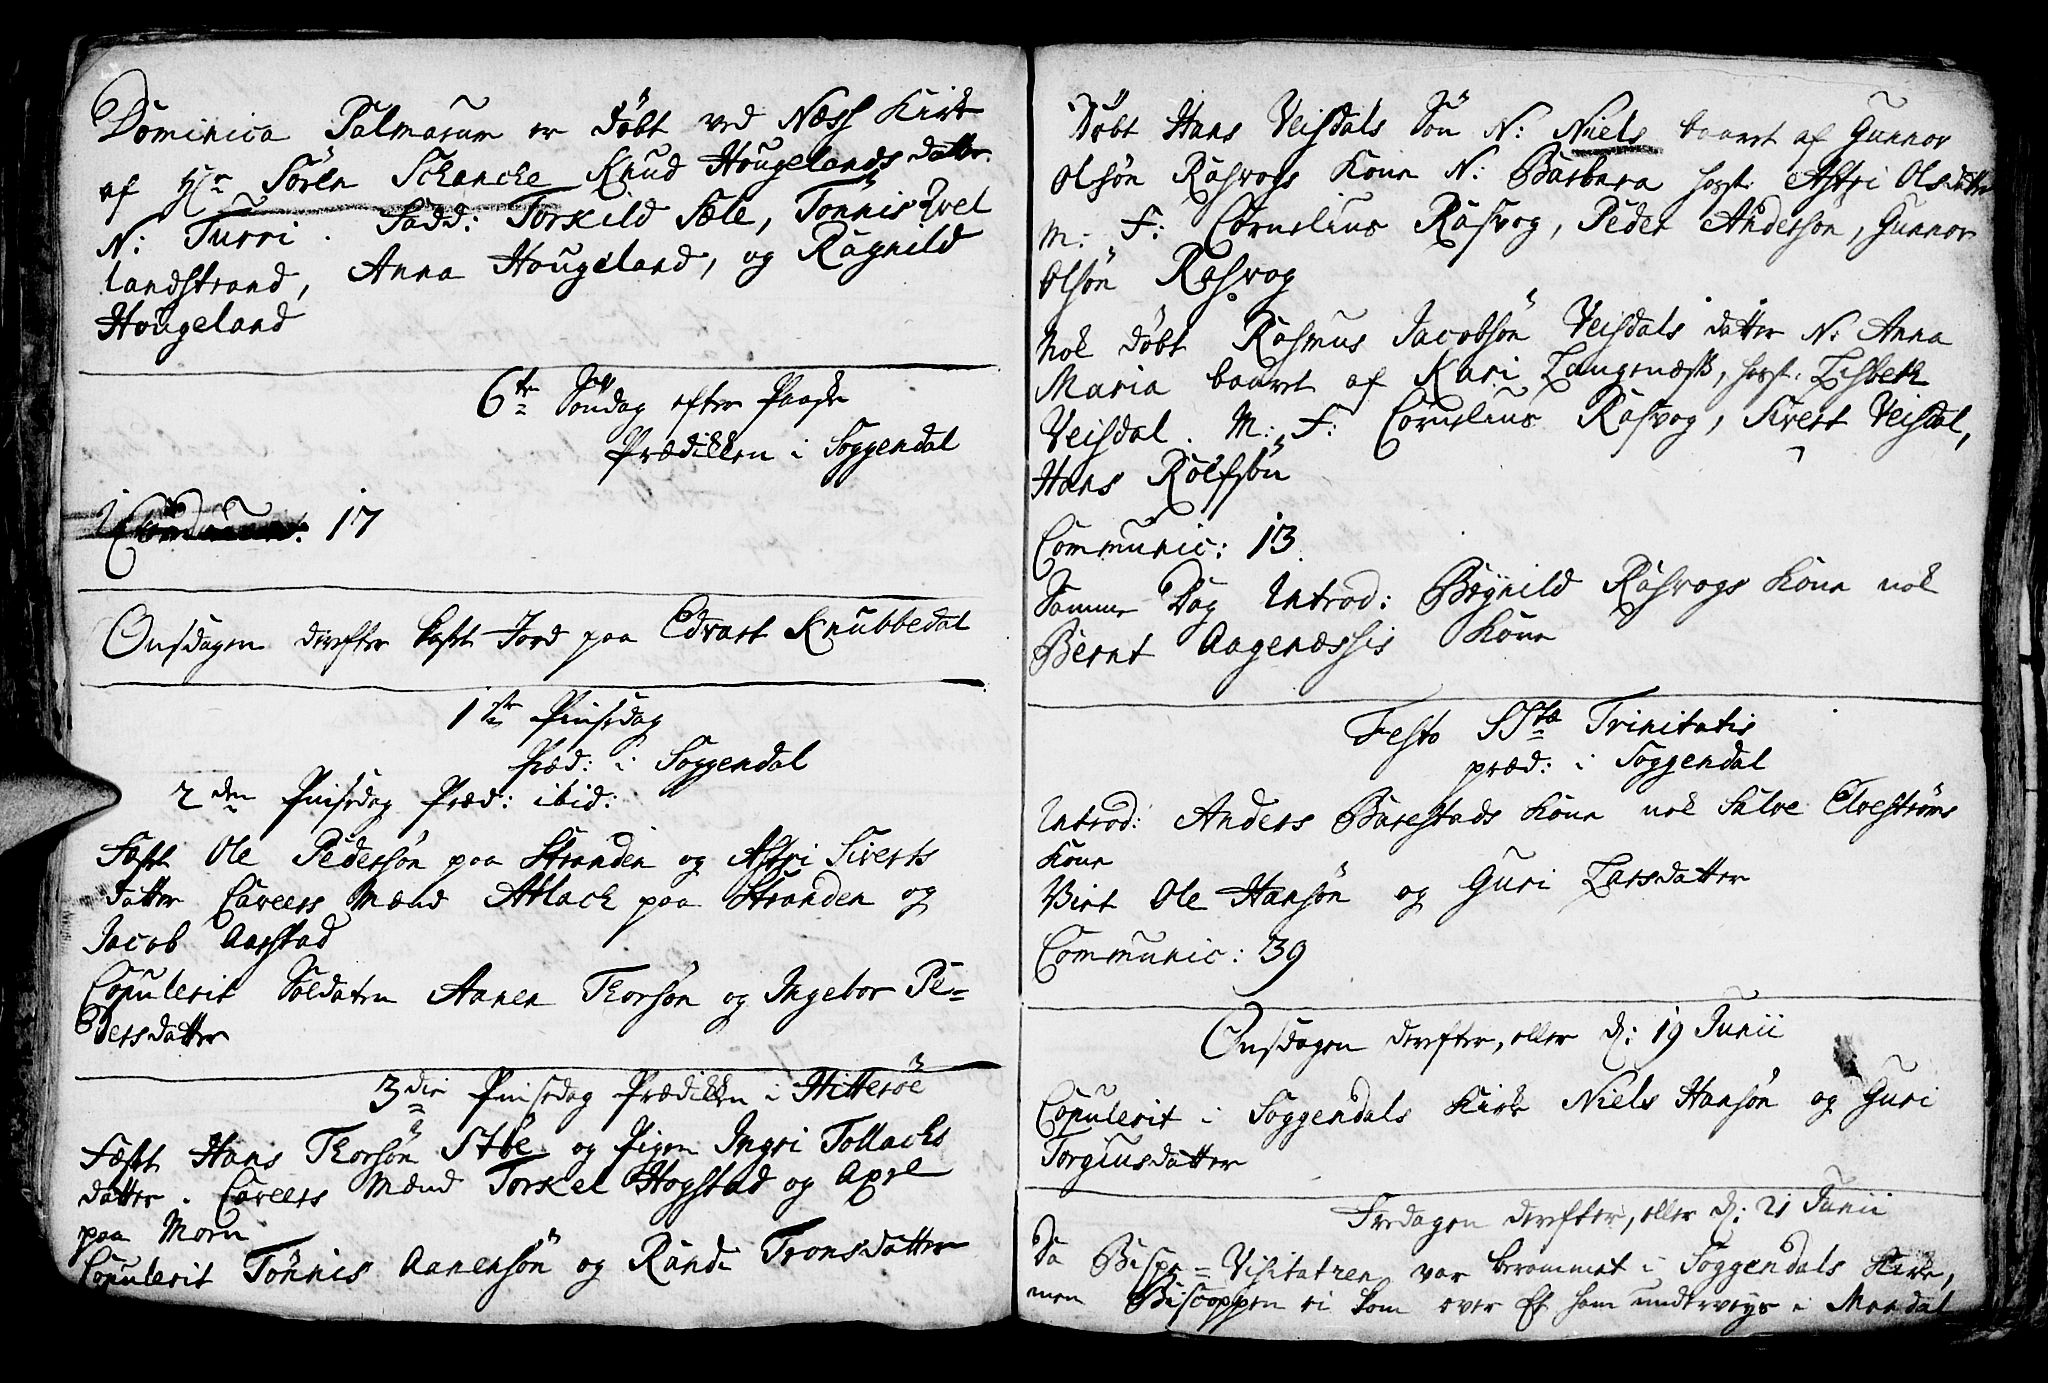 Dominica Palmarum er döbt ved Næss Kirke
af Hr Sören Schancke Knud Hougelands datter
N: Turri. Fadd: Torkild Sæle, Tönnis Qvel
landstrand, Anna Hougeland, og Ragnild
Hougeland
6te Söndag efter Paaske
Prædiken i Soggendal
Communic: 17
Onsdagen derefter kast Jord paa Edvart Knubbedal
1ste Pinsedag
Præd: i Soggendal
2den Pinsedag Præd: ibid:
Fæst Ole Pedersön paa Stranden og Astri Siverts
datter Caveers Mænd Atlach paa Stranden og
Jacob Aarstad
Copulerit Soldaten Aanen Thorsön og Ingebor Pe=
dersdatter
3die Pinsedag Prædiken i Hitteröe
Fæst Hans Thorsön Stöe og Pigen Ingri Tollachs
datter. Caveers Mænd Torkel Hogstad og Axel
paa Moen
Copulerit Tönnis Aanensön og Randi Tronsdatter
Döbt Hans Veisdals Sön N: Niels baaret af Gunnor
Olsön Rasvogs Kone N: Barbara host: Astri Olsdatter
M: F: Cornelius Rasvog, Peder Andersön, Gunnor
Olsön Rasvog
Nok döbt Rasmus Jacobsön Veisdals datter N: Anna
Maria baaret af Kari Langenæss, host: Lisbeth
Veisdal. M: F: Cornelius Rasvog, Sivert Veisdal,
Hans Rolfsön
Communic: 13
Samme Dag Introd: Bøynild Rasvogs Kone nok
Bernt Aagenæssis Kone
Festo SSta Trinitatis
præd: i Soggendal
Introd: Anders Barestads Kone nok Salve Elveströms
Kone
Viet Ole Hansön og Guri Larsdatter
Communic: 39
Onsdagen derefter, eller d: 19 Junii
Copulerit i Soggendals Kirke Niels Hansön og Guri
Torgiusdatter
Fredagen derefter, eller d: 21 Junii
Da Bispe=Visitatzen var berammet i Soggendals Kirke,
men Biscoppen ei kom over Et som underveys i Mandal